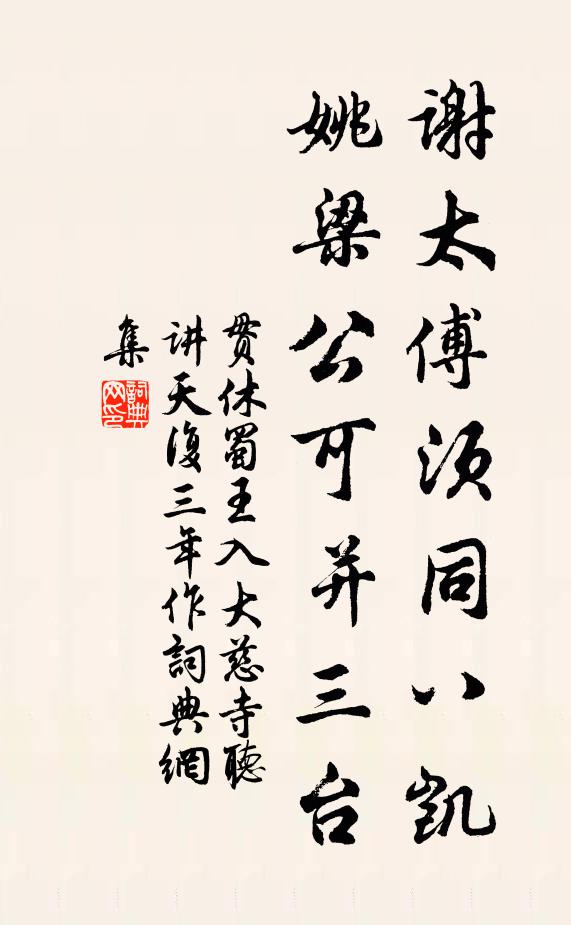 谢太傅须同八凯
姚梁公可并三台
贯休蜀王入大慈寺聽
讲天復三年作詞典網
集
詞典
网印